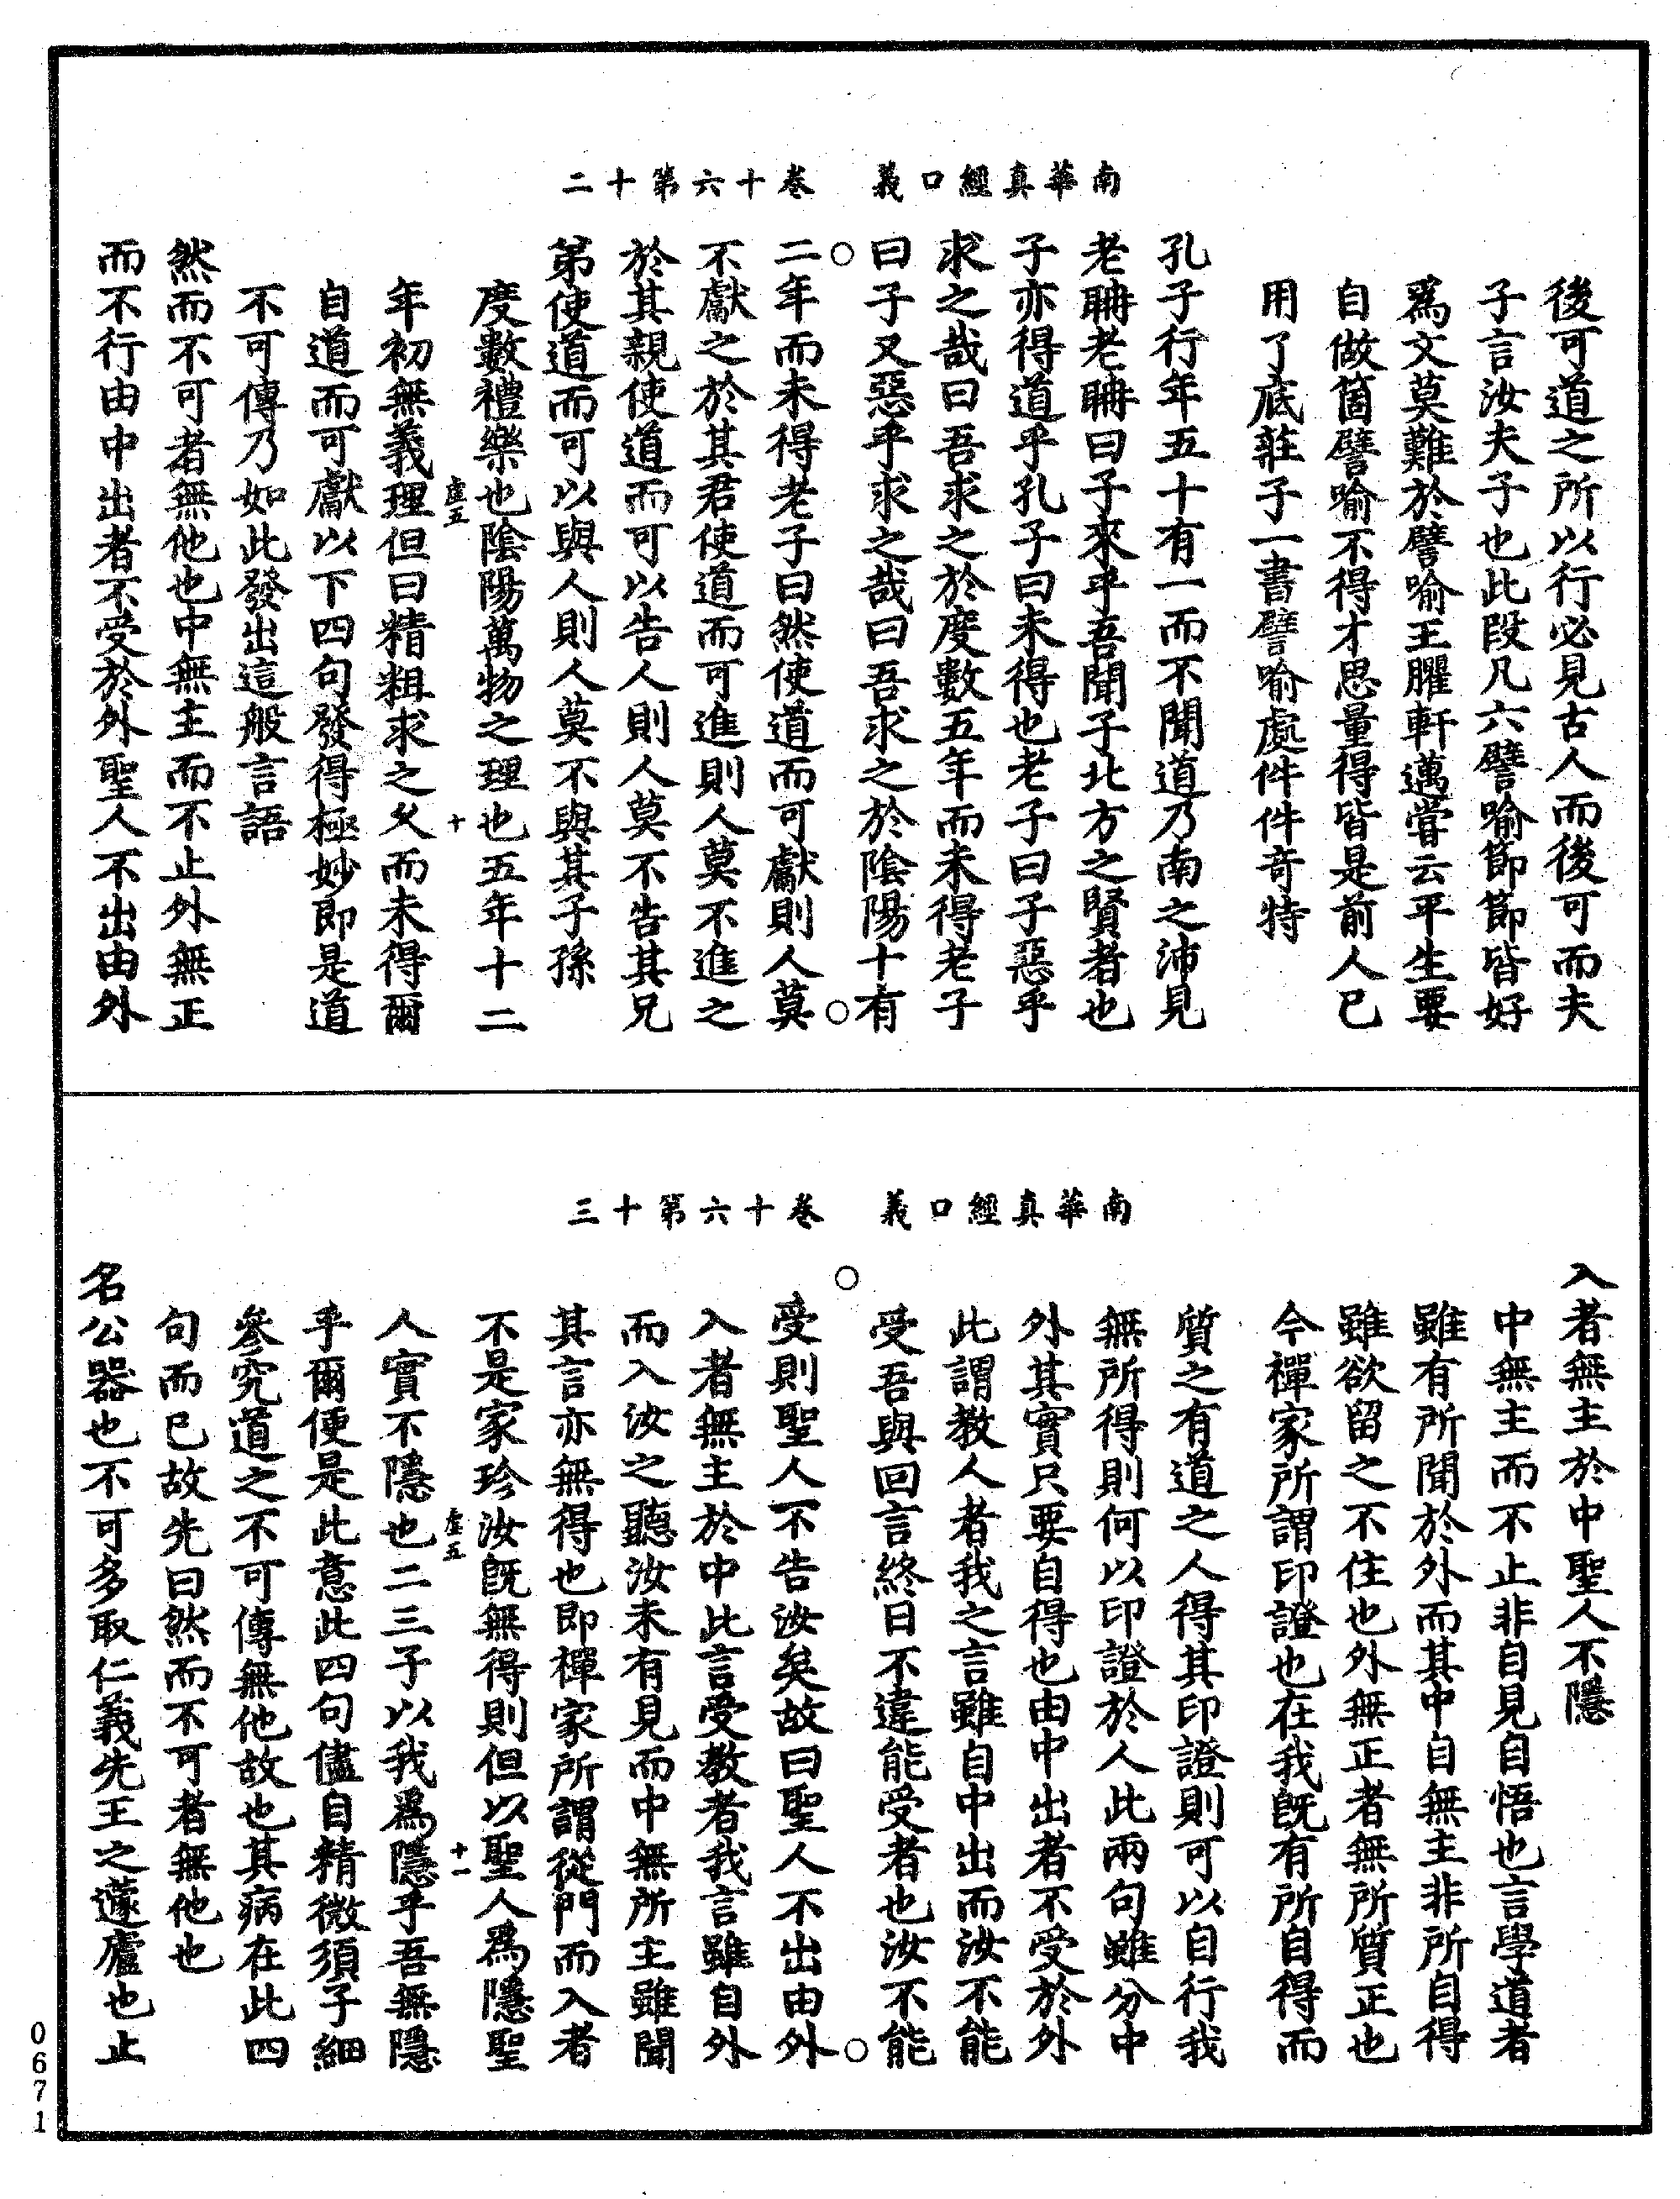 南華真經口義　卷十六第十二
後可道之所以行必見古人而後可而夫
子言汝夫子也此段凡六譬喻節節皆好
為文莫難於譬喻王臞軒邁嘗云平生要
自做箇譬喻不得才思量得皆是前人已
用了底莊子一書譬喻處件件奇特
孔子行年五十有一而不聞道乃南之沛見
老聃老聃曰子來乎吾聞子北方之賢者也
子亦得道乎孔子曰未得也老子曰子惡乎
求之哉曰吾求之於度數五年而未得老子
曰子又惡乎求之哉曰吾求之於陰陽十有
○○
二年而未得老子曰然使道而可獻則人莫
不獻之於其君使道而可進則人莫不進之
於其親使道而可以告人則人莫不告其兄
弟使道而可以與人則人莫不與其子孫
度數禮樂也陰陽萬物之理也五年十二
虛五　十
年初無義理但曰精粗求之久而未得爾
自道而可獻以下四句發得極妙即是道
不可傳乃如此發出這般言語
然而不可者無他也中無主而不止外無正
而不行由中出者不受於外聖人不出由外
南華真經口義　卷十六第十三
入者無主於中聖人不隱
中無主而不止非自見自悟也言學道者
雖有所聞於外而其中自無主非所自得
雖欲留之不住也外無正者無所質正也
今禪家所謂印證也在我既有所自得而
質之有道之人得其印證則可以自行我
無所得則何以印證於人此兩句雖分中
外其實只要自得也由中出者不受於外
此謂教人者我之言雖自中出而汝不能
受吾與回言終日不違能受者也汝不能
○○
受則聖人不告汝矣故曰聖人不出由外
入者無主於中此言受教者我言雖自外
而入汝之聽汝未有見而中無所主雖聞
其言亦無得也即禪家所謂從門而入者
不是家珍汝既無得則但以聖人為隱聖
虛五　十一
人實不隱也二三子以我為隱乎吾無隱
乎爾便是此意此四句儘自精微須子細
參究道之不可傳無他故也其病在此四
句而已故先曰然而不可者無他也
名公器也不可多取仁義先王之蘧廬也止
0671